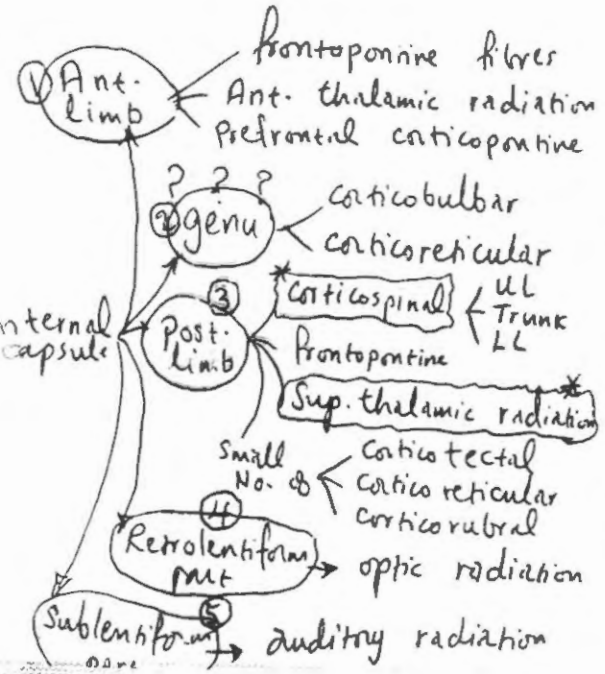 ① Ant.
limb
frontopontine fibres
Ant. thalamic radiation
Prefrontal corticopontine
? ? ?
② genu
corticobulbar
corticoreticular
③
Post.
limb
* corticospinal
UL
Trunk
LL
frontopontine
* Sup. thalamic radiation
Small
No. of
Corticotectal
Corticoreticular
Corticorubral
nternal
capsule
④
Retrolentiform
→ optic radiation
⑤
Sublentiform
→ auditory radiation